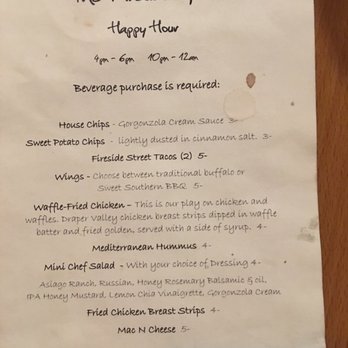 Happy Hour
4pm - 6pm 10pm - 12am
Beverage purchase is required:
House Chips - Gorgonzola Cream Sauce 3-
Sweet Potato Chips - lightly dusted in cinnamon salt. 3-
Fireside Street Tacos (2) 5-
Wings - Choose between traditional buffalo or
Sweet Southern BBQ 5-
Waffle-Fried Chicken - This is our play on chicken and
waffles. Draper Valley chicken breast strips dipped in waffle
batter and fried golden, served with a side of syrup. 4-
Mediterranean Hummus 4-
Mini Chef Salad - With your choice of Dressing 4-
Asiago Ranch, Russian, Honey Rosemary Balsamic & oil,
IPA Honey Mustard, Lemon Chia Vinaigrette, Gorgonzola Cream
Fried Chicken Breast Strips 4-
Mac N Cheese 5-